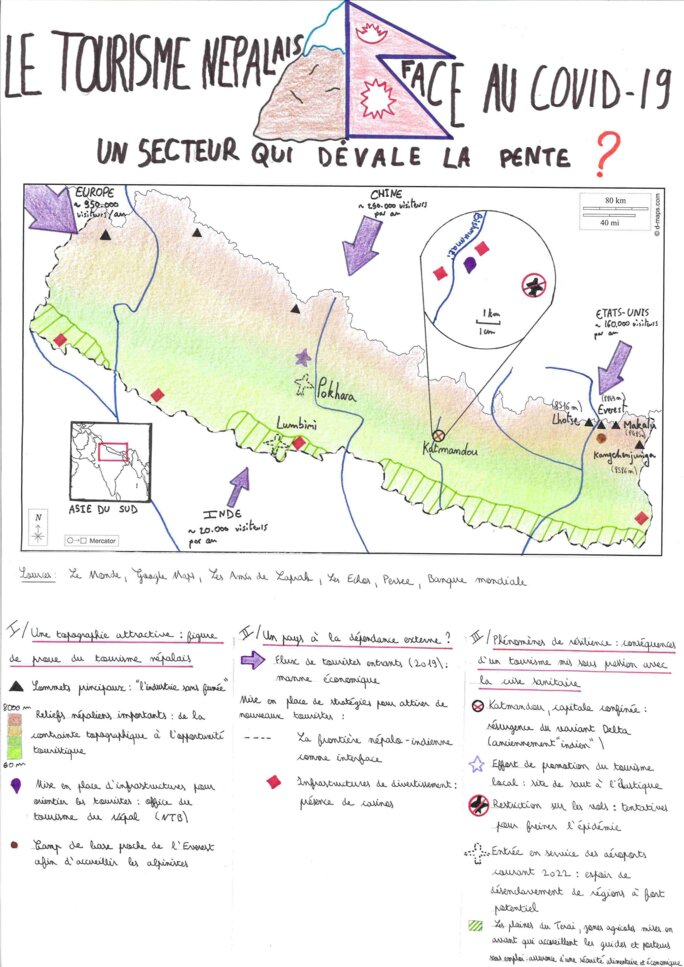 LE TOURISME NÉPALAIS FACE AU COVID-19
UN SECTEUR QUI DÉVALE LA PENTE ?
EUROPE
~ 350.000
visiteurs/an
CHINE
~ 250.000 visiteurs
par an
80 km
40 mi
© d-maps.com
Bishnumati
1 km
1 cm
ETATS-UNIS
~ 160.000 visiteurs
par an
Pokhara
Lumbini
Katmandou
(8516 m)
Lhotse
Everest
Makalu
Kangchenjunga
(8586 m)
ASIE DU SUD
INDE
~ 20.000 visiteurs
par an
N
Mercator
Sources : Le Monde, Google Maps, Les Amis de, Les Echos, Persee, Banque mondiale
I/ Une topographie attractive : figure
de proue du tourisme népalais
Sommets principaux : "l'industrie sans fumée"
8000 m
60 m
Reliefs népaliens importants : de la
contrainte topographique à l'opportunité
touristique
Mise en place d'infrastructures pour
orienter les touristes : office du
tourisme du Népal (NTB)
Camp de base proche de l'Everest
afin d'accueillir les alpinistes
II/ Un pays à la dépendance externe ?
Flux de touristes entrants (2019) :
manne économique
Mise en place de stratégies pour attirer de
nouveaux touristes :
La frontière népalo-indienne
comme interface
Infrastructures de divertissement :
présence de casinos
III/ Phénomènes de résilience : conséquences
d'un tourisme mis sous pression avec
la crise sanitaire
Katmandou, capitale confinée :
résurgence du variant Delta
(anciennement "indien")
Effort de promotion du tourisme
local : site de saut à l'élastique
Restriction sur les vols : tentatives
pour freiner l'épidémie
Entrée en service des aéroports
courant 2022 : espoir de
désenclavement de régions à fort
potentiel
Les plaines du Teraï, zones agricoles mises en
avant qui accueillent les guides et porteurs
sans emploi : assurance d'une sécurité alimentaire et économique